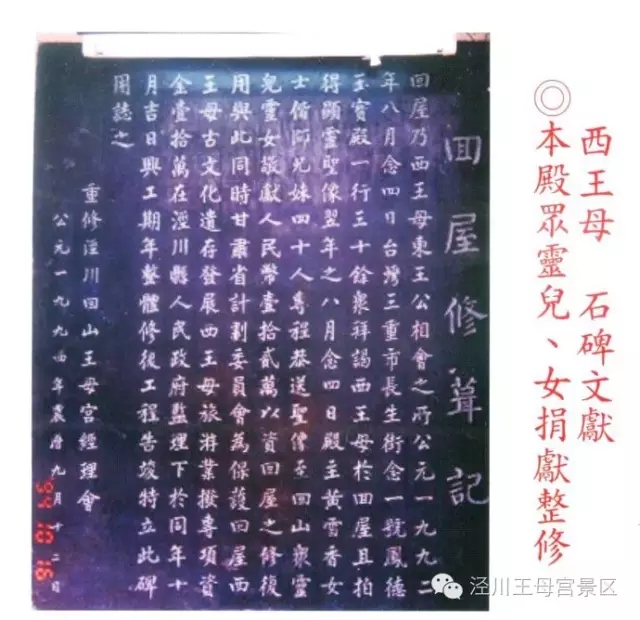 西王母 石碑文獻
◎本殿眾靈兒、女捐獻整修
回屋修葺記
回屋乃西王母東王公相會之所公元一九九二
年八月念四日台灣三重市長生街念一號鳳德
玉寶殿一行三十餘眾拜謁西王母於回屋且拍
得顯靈聖像翌年之八月念四日殿主黃雪香女
士偕師兄妹四十人專程恭送聖像至回山眾靈
兒靈女敬獻人民幣壹拾貳萬以資回屋之修復
用與此同時甘肅省計劃委員會為保護回屋西
王母古文化遺存發展西王母旅游業撥專項資
金壹拾萬在涇川縣人民政府監理下於同年十
月吉日興工期年整體修復工程告竣特立此碑
用誌之
重修涇川回山王母宮經理會
公元一九九四年農曆九月十二日
94 10 16
泾川王母宫景区